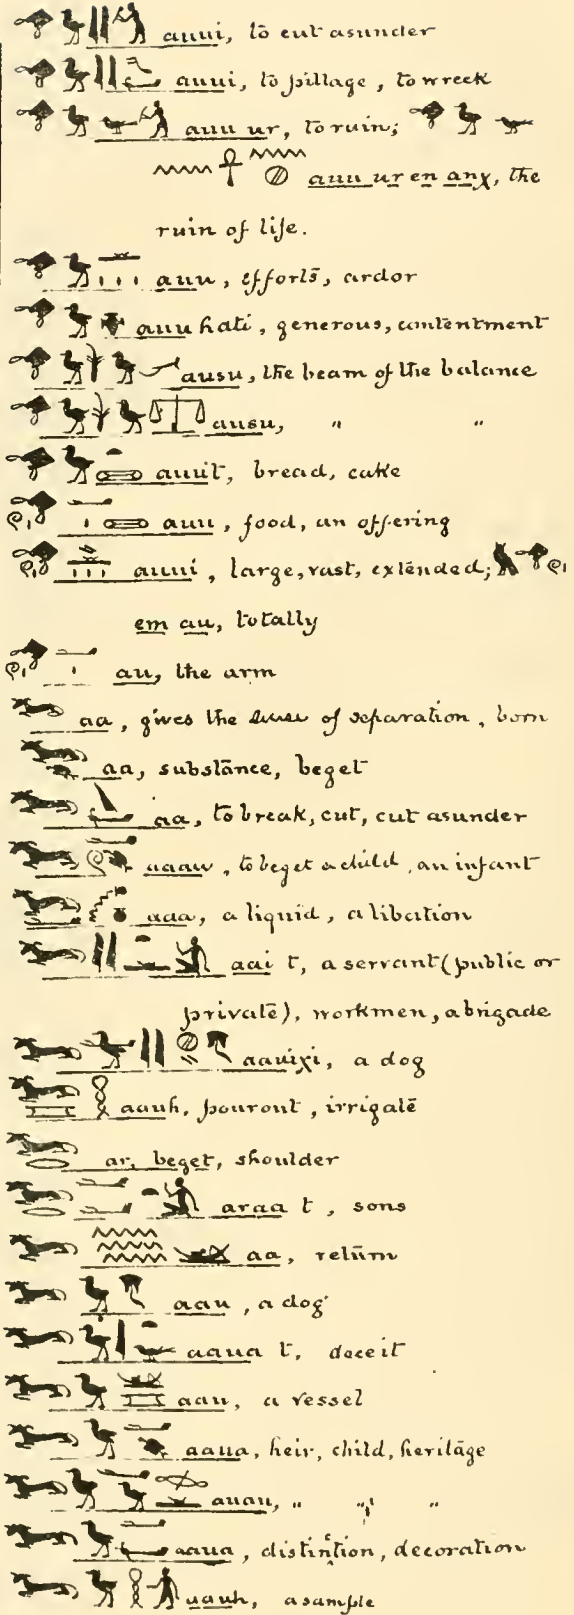 auui, to cut asunder
auui, to pillage, to wreck
auu ur, to ruin;
auu ur en anχ, the
ruin of life.
auu, efforts, ardor
auu hati, generous, contentment
ausu, the beam of the balance
ausu, " "
auuit, bread, cake
auu, food, an offering
auui, large, vast, extended;
em au, totally
au, the arm
aa, gives the sense of separation, born
aa, substance, beget
aa, to break, cut, cut asunder
aaau, to beget a child, an infant
aaa, a liquid, a libation
aai t, a servant (public or
private), workmen, a brigade
aauiχi, a dog
aauh, pour out, irrigate
ar, beget, shoulder
araa t, sons
aa, return
aau, a dog
aaua t, deceit
aau, a vessel
aaua, heir, child, heritage
auau, " " "
aaua, distinction, decoration
uauh, a sample